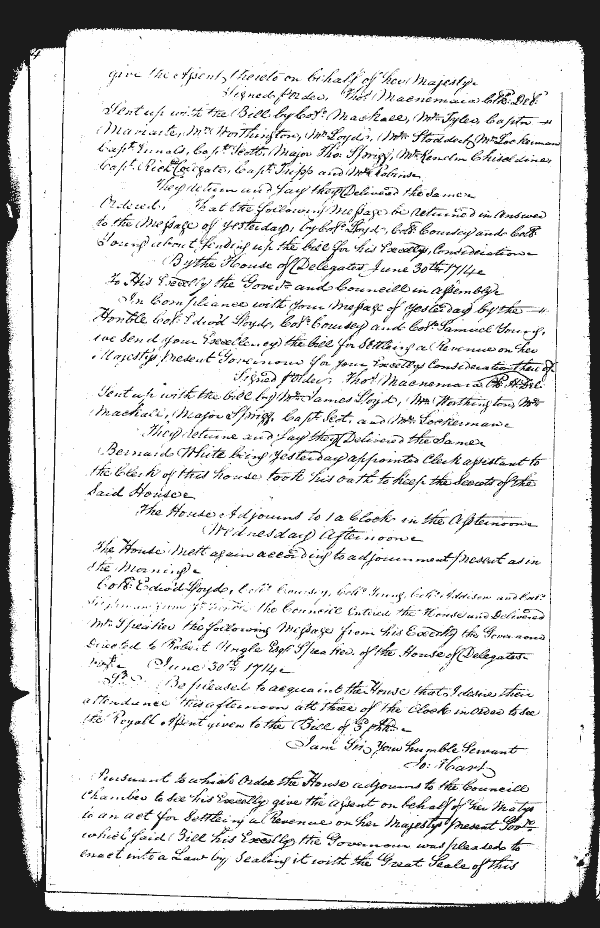 give the Assent thereto on behalf of her Majesty
Signed p Order, Tho.s Macnemara Clk. Del.
Sent up with the Bill by Col.o Mackall, Mr. Tyler, Capt.n
Mariarte, Mr. Worthington, Mr. Loyd, Mr. Stoddert, Mr. Lockerman
Capt. Innals, Capt. Scott, Major Tho. Sprigg, Mr. Kenelm Chiseldine
Capt. Rich.d Colegate, Capt. Jupp and Mr. Robins
They return and say they Delivered the Same
Ordered, That the following Message be returned in Answer
to the Message of Yesterday, by Col.o Lloyd, Col.o Coursey and Col.o
Young about sending up the bill for his Excellys Consideration
By the House of Delegates June 30th 1714
To His Excelly the Govern.r and Councill in Assembly
In Compliance with your Message of Yesterday by the
Honble Col.o Edw.d Lloyd, Col.o Coursey and Col.o Samuel Young,
we send your Excellency the bill for Settling a Revenue on her
Majestys Present Governour for your Excellys Consideration thereof
Signed p Order, Tho.s Macnemara Clk. H. Del.
Sent up with the bill by Mr. James Lloyd, Mr. Worthington, Mr.
Mackall, Major Sprigg, Capt. Scot, and Mr. Lockerman
They returne and say they Delivered the Same
Bernard White being Yesterday appointed Clerk assistant to
the Clerk of this house took his oath to keep the Secrets of the
Said House
The House Adjourns to 1 a Clock in the Afternoon
Wednesday Afternoon
The House Mett again according to adjournment present as in
the Morning
Col.o Edw.d Lloyd, Col.o Coursey, Col.o Young, Col.o Addison and
the Councill Entred the House and Delivered
Mr. Speaker the following Message from his Excelly the Governour
Directed to Robert Ungle Esqr Speaker of the House of Delegates
June 30th 1714
Sr. Be pleased to acquaint the House that I desire their
attendance this afternoon att three of the Clock in order to see
the Royall Assent given to the Bill of
I am Sir Your humble Servant
Jo: Hart
Pursuant to which Order the House adjourns to the Councill
Chamber to see his Excelly give the assent on behalf of her Matys
to an act for Settling a Revenue on her Majestys present Govr.
which said Bill his Excelly the Governour was pleased to
enact into a Law by Sealing it with the Great Seale of this